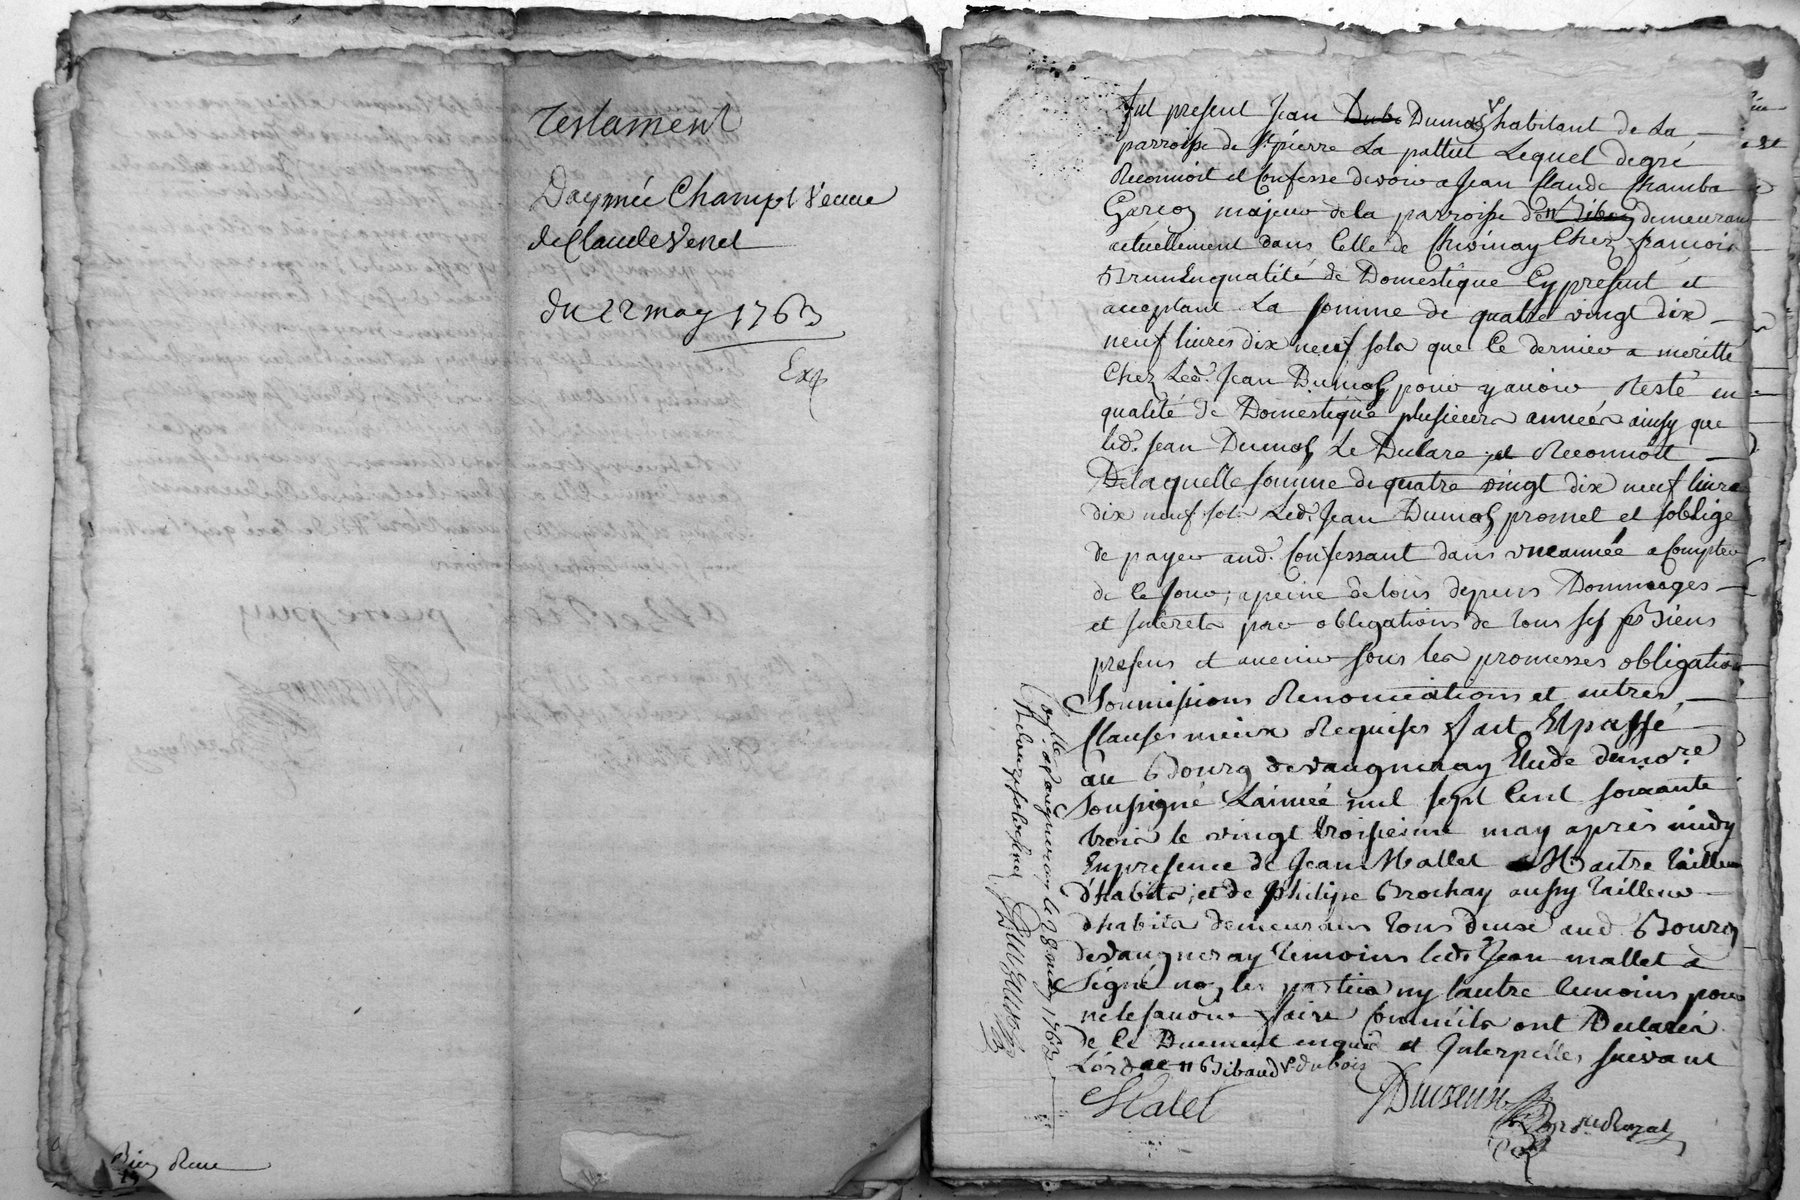 Testament
Daymée Champt Veuve
de Claude Venet
du 22 may 1763
Exp
Bien Rare
Fut present Jean Dubo Dumas habitant de La
parroisse de St pierre La pallut Lequel de gré
Reconnoit et Confesse devoir a Jean Claude Chamba
Garcon majeur de la parroisse de demeurant
actuellement dans Celle de Chevinay Chez francois
Brun En qualité de Domestique Cy present et
acceptant La somme de quatre vingt dix
neuf livres dix neuf sols que Ce dernier a meritté
Chez Led. Jean Dumas pour y avoir Resté en
qualité de Domestique plusieurs années ainsy que
led. Jean Dumas Le Declare, et Reconnoit
De laquelle somme de quatre vingt dix neuf livres
dix neuf sols Led. Jean Dumas promet et soblige
de payer aud. Confessant dans une année a Compter
de Ce jour, a peine de tous depens Dommages
et Interets par obligations de tous ses Biens
presens et avenir sous les promesses obligations
Soumissions Renonciations et autres
Clauses mieux Requises fait Et passé
au Bourg de Vaugneray Etude du nore
soussigné L'année mil sept Cent soixante
trois le vingt troisieme may apres midy
En presence de Jean Mallet Maitre Tailleur
d'habits, et de Philipe Brochay aussy Tailleur
d'habits demeurans tous deux aud. Bourg
de Vaugneray temoins led. Jean mallet a
Signé non les parties ny l'autre temoins pour
ne le savoir faire Comme ils ont Declarés
de Ce Duement enquis et Interpelles suivant
L'ordce " Bibaud v dubois
Malet
Collé a Vaugneray le 28 may 1763